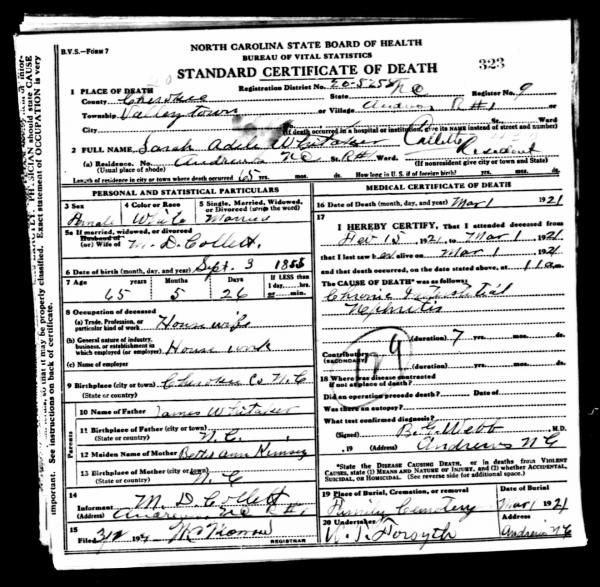 B.V.S.—FORM 7
NORTH CAROLINA STATE BOARD OF HEALTH
BUREAU OF VITAL STATISTICS
STANDARD CERTIFICATE OF DEATH
323
1 PLACE OF DEATH Registration District No. 20-5252 Register No. 9
County Cherokee State N C
Township Valleytown or Village Andrews R#1 or
City No. St. Ward
(If death occurred in a hospital or institution, give its NAME instead of street and number)
2 FULL NAME Sarah Adeli Whitaker Collett
(a) Residence. No. Andrews N.C. St. R#1 Ward. Resident
(Usual place of abode) (If nonresident give city or town and State)
Length of residence in city or town where death occurred 65 yrs. mos. ds. How long in U. S. if of foreign birth? yrs. mos. ds.
PERSONAL AND STATISTICAL PARTICULARS
3 Sex 4 Color or Race 5 Single, Married, Widowed, or Divorced (write the word)
Female White Married
5a If married, widowed, or divorced
Husband of
(or) Wife of M. D. Collett.
6 Date of birth (month, day, and year) Sept. 3 1855
7 Age Years Months Days If LESS than 1 day, hrs. or min.
65 5 26
8 Occupation of deceased
(a) Trade, Profession, or particular kind of work House wife
(b) General nature of industry, business, or establishment in which employed (or employer) House work
(c) Name of employer
9 Birthplace (city or town) Cherokee Co N.C
(State or country)
10 Name of Father James Whitaker
11 Birthplace of Father (city or town)
(State or country) N.C.
12 Maiden Name of Mother Betts ann Kimsey
13 Birthplace of Mother (city or town)
(State or country) N.C
Parents
14
Informant M. D. Collett
(Address) Andrews N.C R#1.
15
Filed 3/2 192
REGISTRAR
MEDICAL CERTIFICATE OF DEATH
16 Date of Death (month, day, and year) Mar 1 1921
17
I HEREBY CERTIFY, That I attended deceased from
Fev 15 1921, to Mar 1, 1921
that I last saw her alive on Mar 1 1921
and that death occurred, on the date stated above, at 11 a m.
The CAUSE OF DEATH* was as follows:
Chronic Interstitial
Nephritis
(duration) 7 yrs. mos. ds.
129
Contributory
(SECONDARY)
(duration) yrs. mos. ds.
18 Where was disease contracted
if not at place of death?
Did an operation precede death? Date of
Was there an autopsy?
What test confirmed diagnosis?
(Signed) B. G. Webb, M.D.
, 19 (Address) Andrews N C
*State the DISEASE CAUSING DEATH, or in deaths from VIOLENT CAUSES, state (1) MEANS AND NATURE OF INJURY, and (2) whether ACCIDENTAL, SUICIDAL, or HOMICIDAL. (See reverse side for additional space.)
19 Place of Burial, Cremation, or removal Date of Burial
Family Cemetery Mar 1 1921
20 Undertaker Address
Forsyth Andrews N C
PHYSICIAN should state CAUSE
Exact statement of OCCUPATION is very
so that it may be properly classified.
important. See instructions on back of certificate.